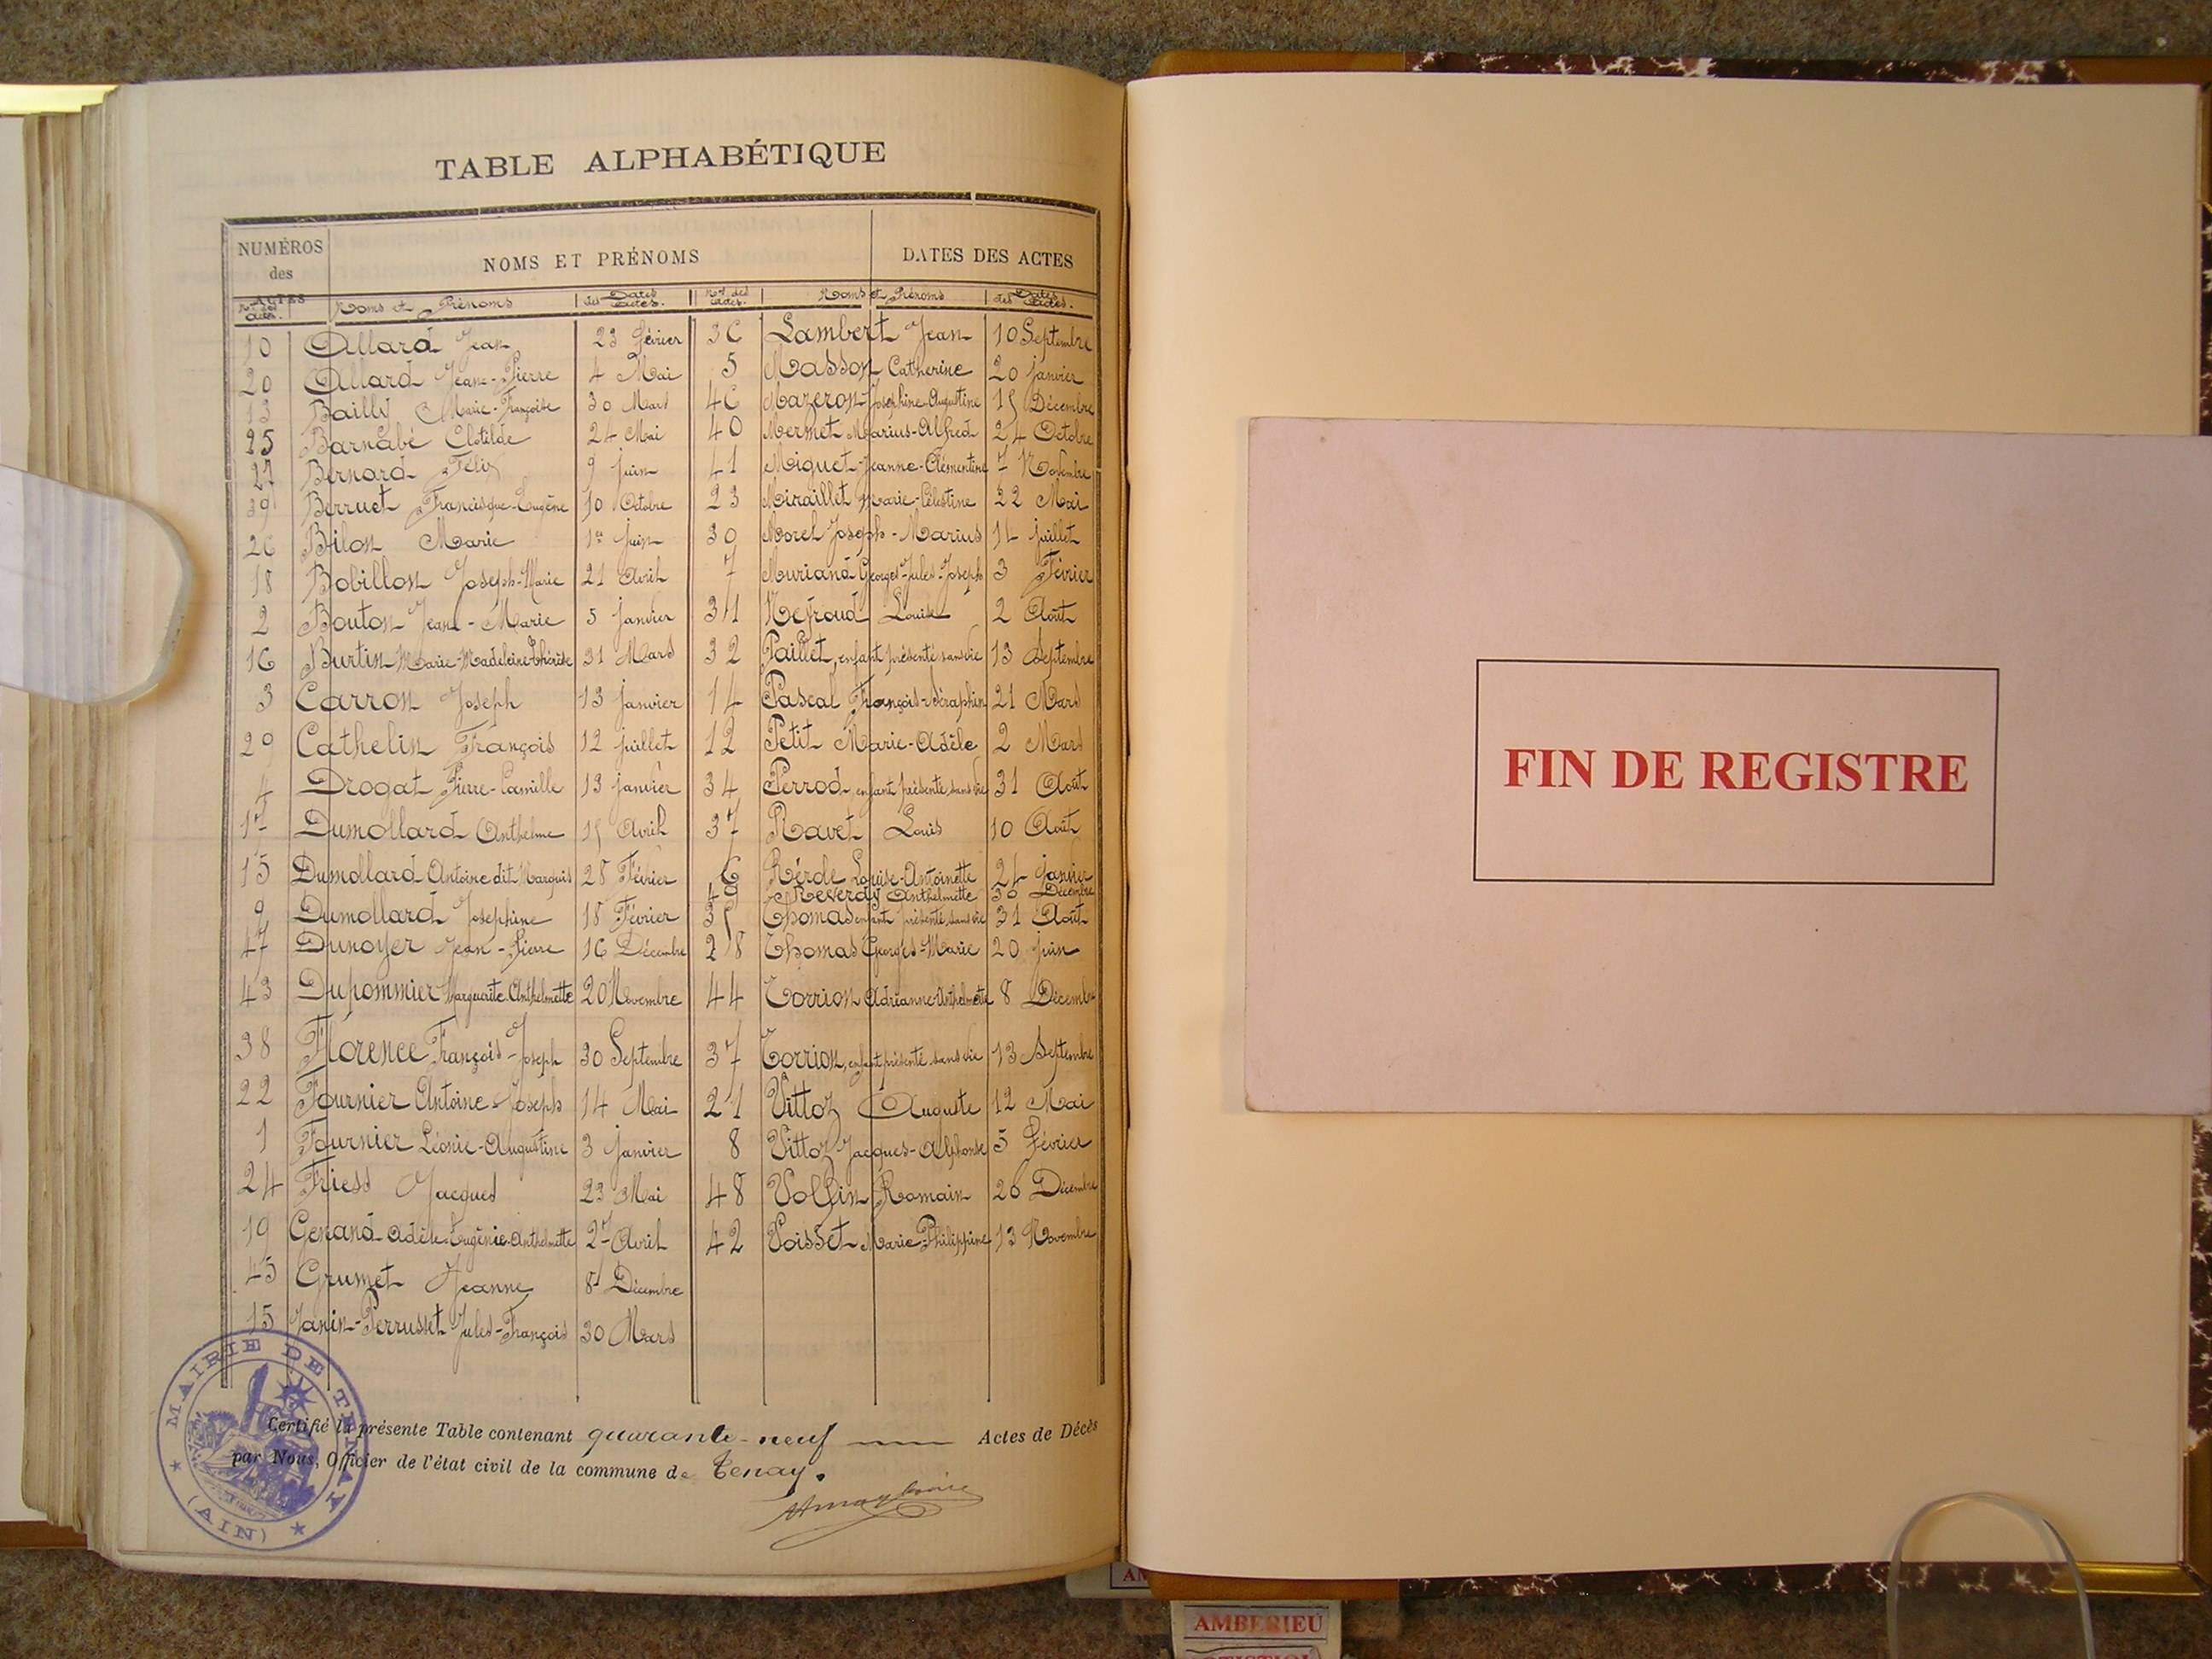 TABLE ALPHABÉTIQUE
NUMÉROS
des
ACTES
NOMS ET PRÉNOMS
DATES DES ACTES
Nos des actes. Noms et Prénoms Dates des actes. Nos des actes. Noms et Prénoms Dates des actes.
10 Allard Jean 23 Février
20 Allard Jean-Pierre 4 Mai
13 Bailly Marie-Françoise 30 Mars
25 Barnabé Clotilde 24 Mai
27 Bernard Félix 9 juin
39 Berruet Francisque-Eugène 10 Octobre
26 Bilon Marie 1er juin
18 Bobillon Joseph-Marie 21 Avril
2 Bouton Jean-Marie 5 janvier
16 Burtin Marie-Madeleine-Thérèse 31 Mars
3 Carron Joseph 13 janvier
29 Cathelin François 12 juillet
4 Drogat Pierre-Camille 13 janvier
17 Dumollard Anthelme 15 Avril
15 Dumollard Antoine dit Marquis 28 Février
9 Dumollard Josephine 18 Février
47 Dunoyer Jean-Pierre 16 Décembre
43 Dupommier Marguerite-Anthelmette 20 Novembre
38 Florence François-Joseph 30 Septembre
22 Fournier Antoine-Joseph 14 Mai
1 Fournier Léonie-Augustine 3 janvier
24 Friess Jacques 23 Mai
19 Genand Adèle-Eugénie-Anthelmette 27 Avril
45 Grumet Jeanne 8 Décembre
15 Janin-Perrusset Jules-François 30 Mars
36 Lambert Jean 10 Septembre
5 Masson Catherine 20 janvier
46 Mazeron Josephine-Augustine 15 Décembre
40 Mermet Marius-Alfred 24 Octobre
41 Miguet Jeanne-Clémentine 7 Novembre
23 Miraillet Marie-Célestine 22 Mai
30 Morel Joseph-Marius 14 juillet
7 Muriand Georges-Jules-Joseph 3 Février
31 Neyroud Louise 2 Août
32 Paillet, enfant présenté sans vie 13 Septembre
14 Pascal François-Séraphin 21 Mars
12 Petit Marie-Adèle 2 Mars
34 Perrod, enfant présenté sans vie 31 Août
37 Ravet Louis 10 Août
6 Rérole Louise-Antoinette 24 janvier
49 Reverdy Anthelmette 30 Décembre
35 Thomas enfant présenté sans vie 31 Août
28 Thomas Georges-Marie 20 juin
44 Torrion Adrianne-Anthelmette 8 Décembre
37 Torrion, enfant présenté sans vie 13 Septembre
21 Vittoz Auguste 12 Mai
8 Vittoz Jacques-Alphonse 5 Février
48 Volfin Romain 26 Décembre
42 Voisset Marie-Philippine 13 Novembre
Certifié la présente Table contenant quarante-neuf Actes de Décès
par Nous, Officier de l'état civil de la commune de Tenay.
MAIRIE DE TENAY
(AIN)
FIN DE REGISTRE
AMBERIEU